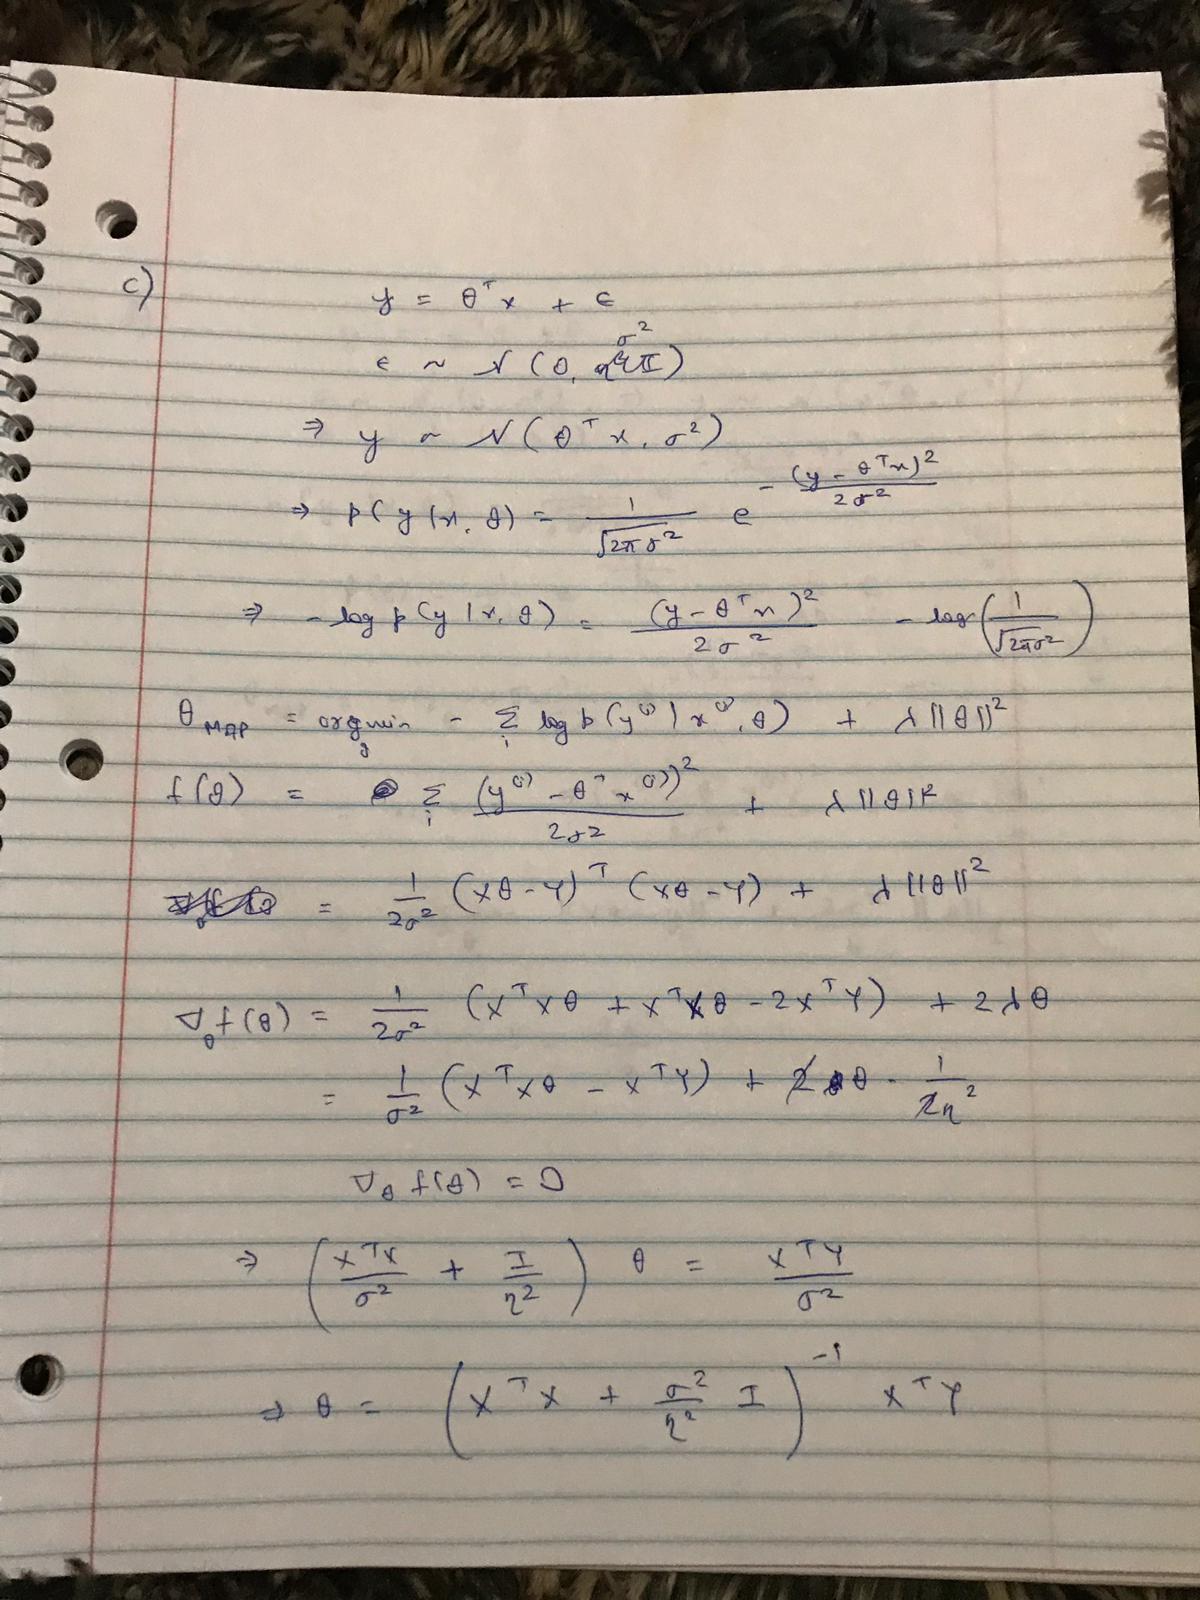 c) y = θᵀx + ϵ
ϵ ~ N(0, σ²)
⇒ y ~ N(θᵀx, σ²)
⇒ p(y|x, θ) = 1/√(2πσ²) e^(−(y − θᵀx)²/2σ²)
⇒ −log p(y|x, θ) = (y − θᵀx)²/2σ² − log(1/√(2πσ²))
θ_MAP = argmin_θ − Σ_i log p(y⁽ⁱ⁾|x⁽ⁱ⁾, θ) + λ||θ||²
f(θ) = Σ_i (y⁽ⁱ⁾ − θᵀx⁽ⁱ⁾)²/2σ² + λ||θ||²
= 1/2σ² (Xθ − Y)ᵀ (Xθ − Y) + λ||θ||²
∇_θ f(θ) = 1/2σ² (XᵀXθ + XᵀXθ − 2XᵀY) + 2λθ
= 1/σ² (XᵀXθ − XᵀY) + 2θ · 1/2η²
∇_θ f(θ) = 0
⇒ (XᵀX/σ² + I/η²) θ = XᵀY/σ²
⇒ θ = (XᵀX + σ²/η² I)⁻¹ XᵀY